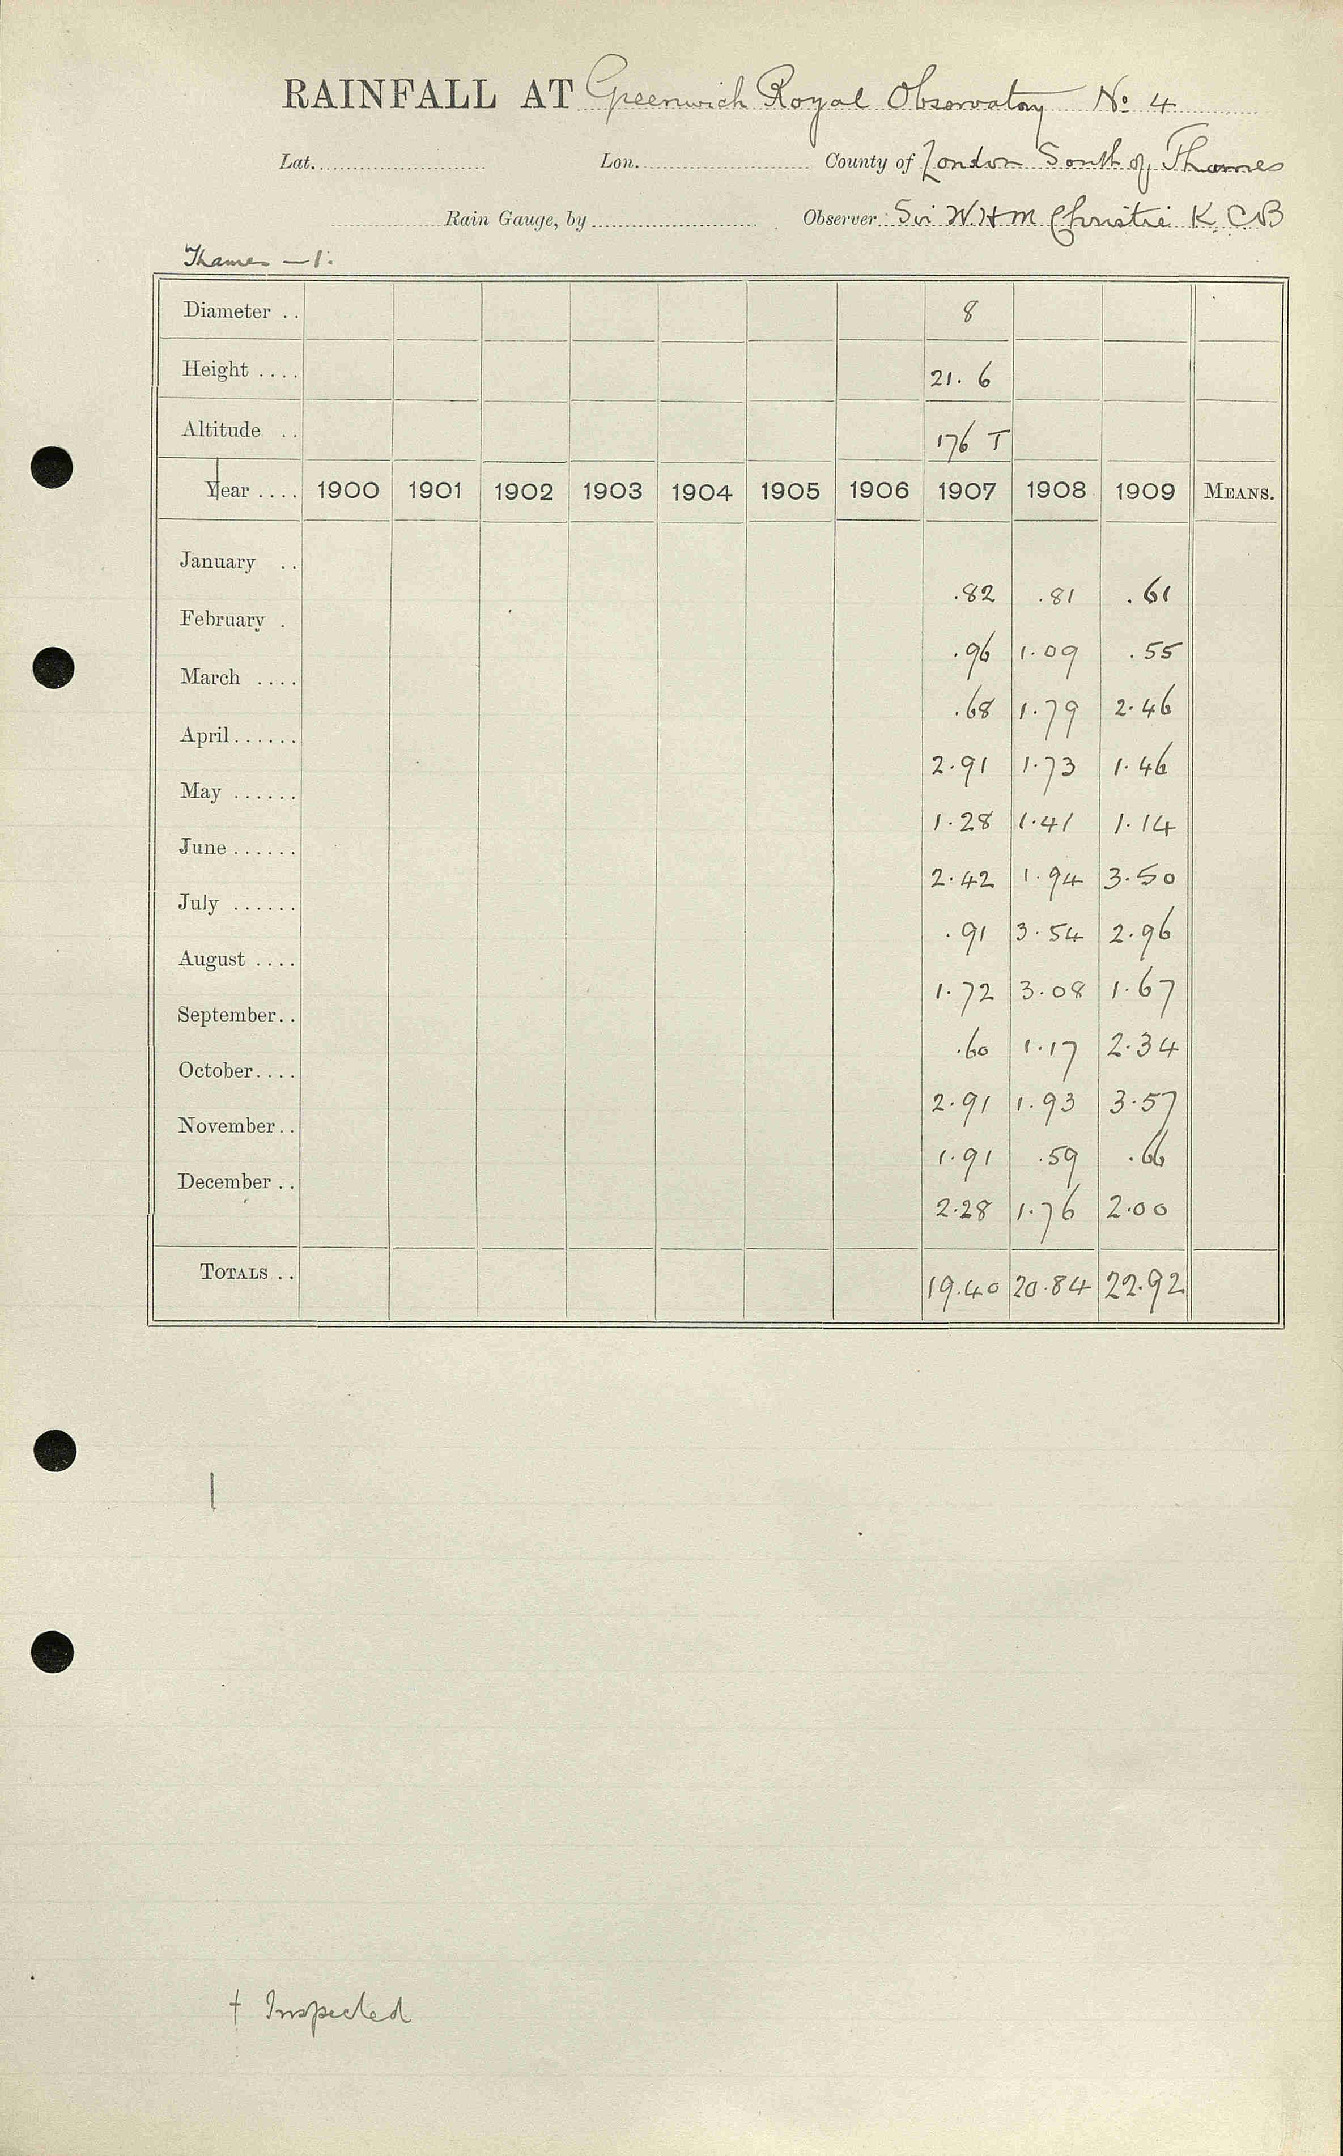 RAINFALL AT Greenwich Royal Observatory No 4
Lat. Lon. County of London South of Thames
Rain Gauge, by Observer Sir W H M Christie K. C B
Thames — 1.
Diameter .. 8
Height .... 21. 6
Altitude .. 176 T
Year .... 1900 1901 1902 1903 1904 1905 1906 1907 1908 1909 MEANS.
January .. .82 .81 .61
February . .96 1.09 .55
March .... .68 1.79 2.46
April...... 2.91 1.73 1.46
May ...... 1.28 1.41 1.14
June ...... 2.42 1.94 3.50
July ...... .91 3.54 2.96
August .... 1.72 3.08 1.67
September.. .60 1.17 2.34
October.... 2.91 1.93 3.57
November.. 1.91 .59 .66
December .. 2.28 1.76 2.00
TOTALS .. 19.40 20.84 22.92
† Inspected